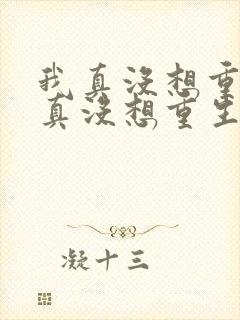 我真没想重
真没想重生
凝十三